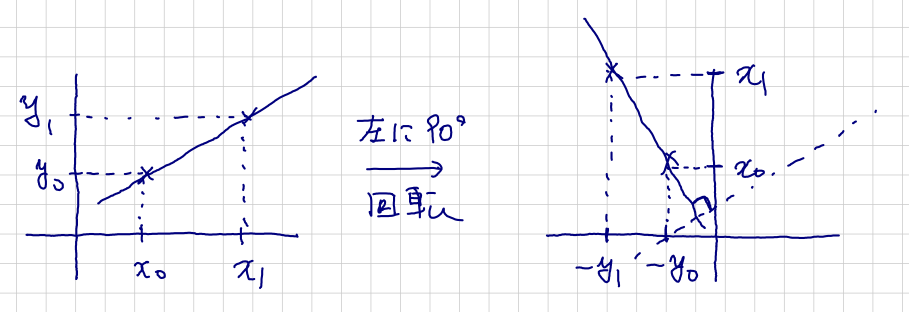 y₁
y₀
x₀
x₁
左に90°
回転
x₁
x₀
-y₁
-y₀